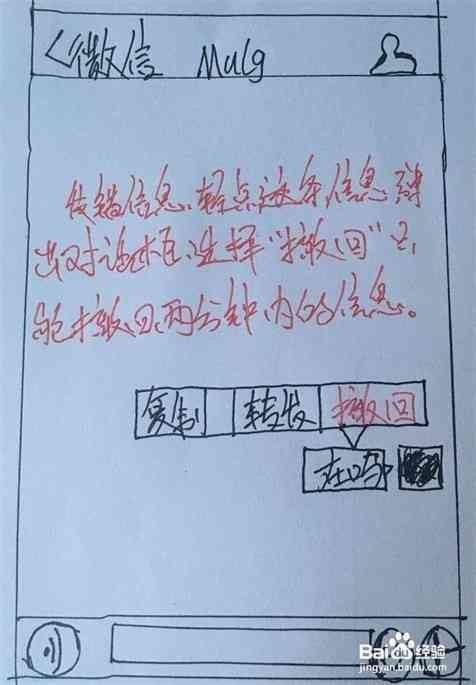 <微信 Mulg
发错信息、轻点这条信息弹
出对话框、选择“撤回”只
能撤回两分钟内的信息。
复制 转发 撤回
在吗
Bai 经验
jingyan.baidu.com